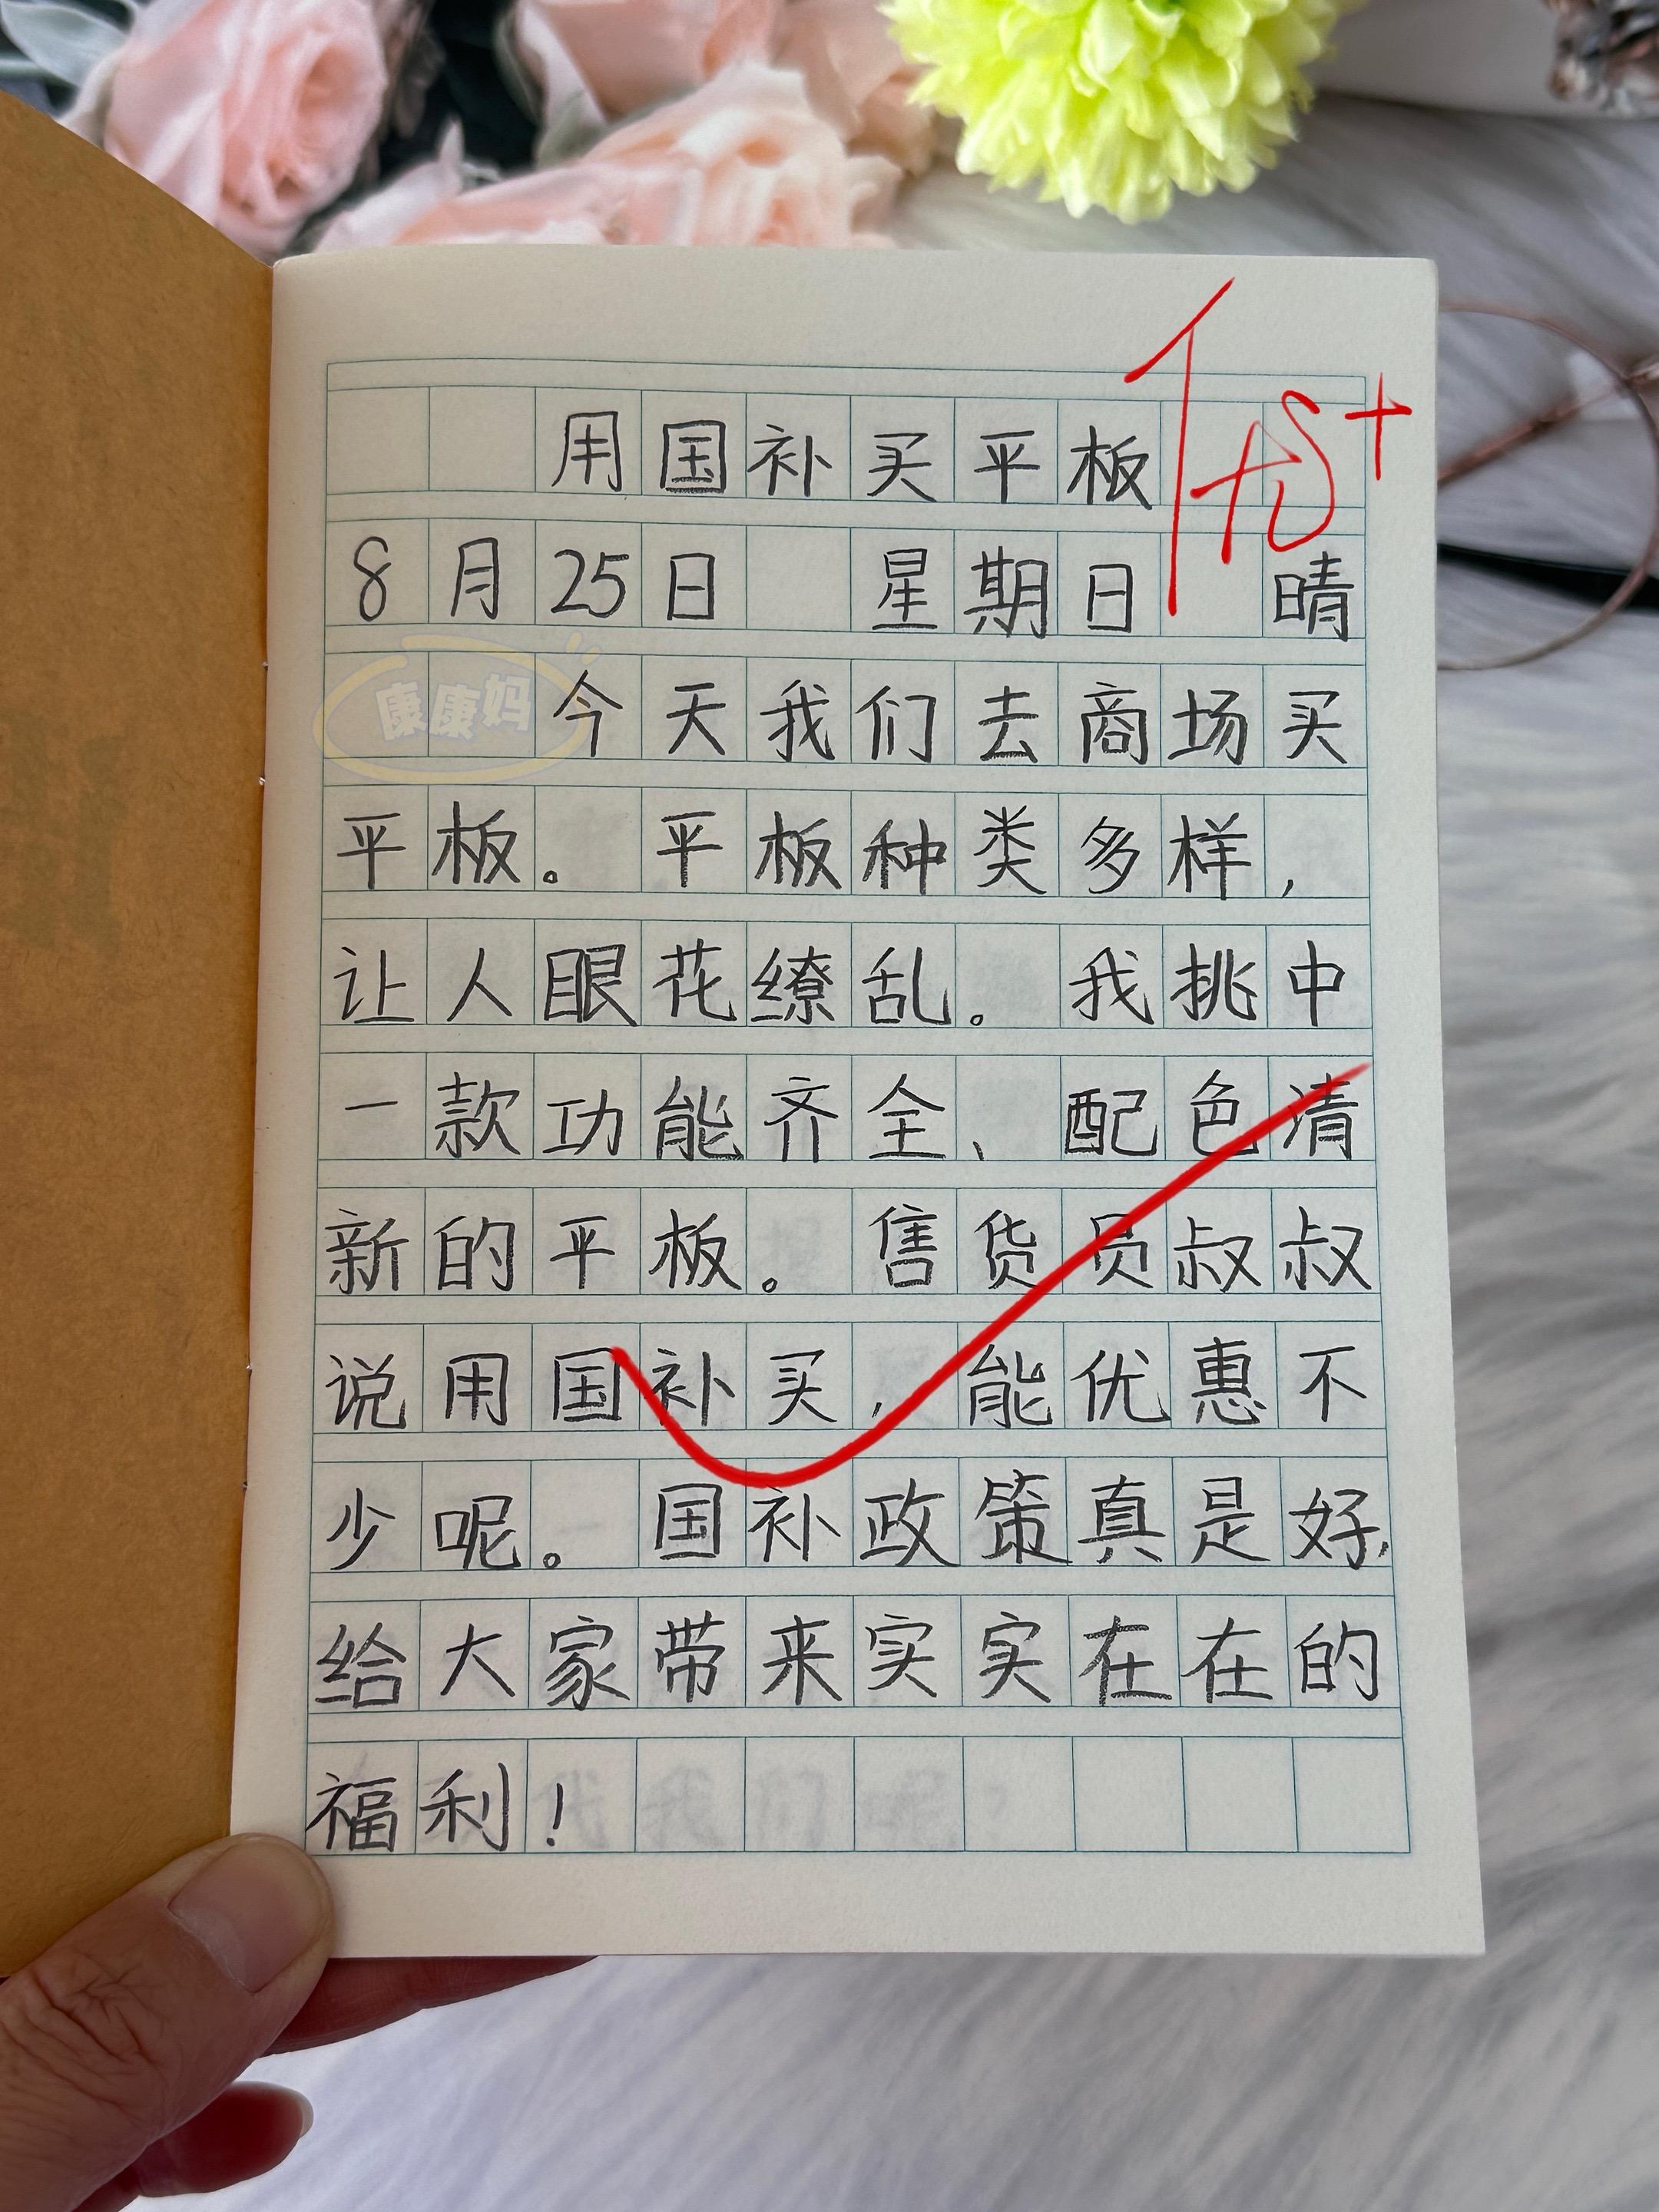 用国补买平板
8月25日 星期日 晴
康康妈
今天我们去商场买
平板。平板种类多样，
让人眼花缭乱。我挑中
一款功能齐全、配色清
新的平板。售货员叔叔
说用国补买，能优惠不
少呢。国补政策真是好，
给大家带来实实在在的
福利！